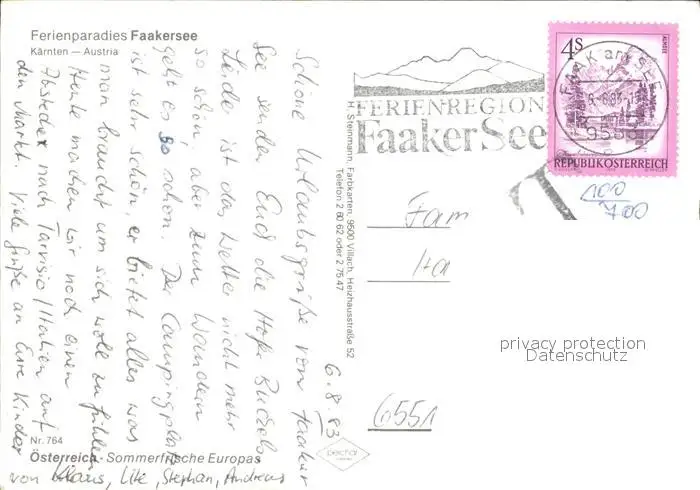 Ferienparadies Faakersee
Kärnten — Austria
Schöne Urlaubsgrüße vom Faaker
See senden Euch die
Leider ist das Wetter nicht mehr
so schön, aber zum Wandern
geht es so schön. Der Campingplatz
ist sehr schön, er bietet alles was
man braucht um sich wohl zu fühlen
Heute machen wir noch einen
Abstecher nach Tarvisio/Italien auf
den Markt. Viele Grüße an Eure Kinder
von Klaus, Ute, Stephan, Andreas
6.8.83
Nr. 764
Österreich · Sommerfrische Europas
H. Steinmann, Farbkarten, 9500 Villach, Heizhausstraße 52
Telefon 2 60 62 oder 2 75 47
FERIENREGION
Faaker See
4S
ALMSEE
FAAK am SEE
REPUBLIK ÖSTERREICH
T
100/700
Fam
Ha
6551
privacy protection
Datenschutz